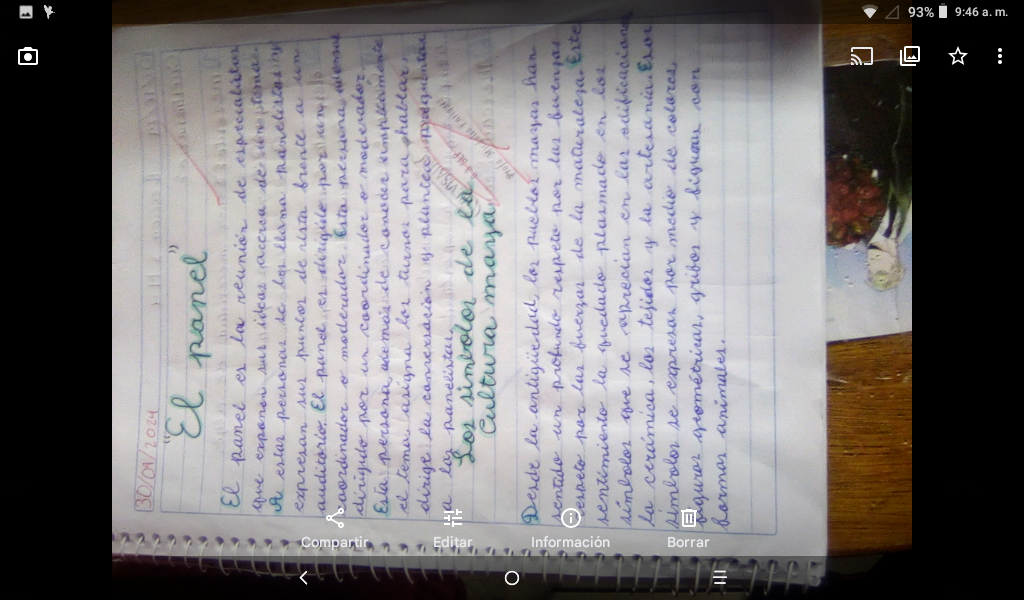 93% 9:46 a. m.
30/04/2024
"El panel"
El panel es la reunión de especialistas
que exponen sus ideas acerca de un tema.
A estas personas se les llama panelistas y
expresan sus puntos de vista frente a un
auditorio. El panel es dirigido por un
coordinador o moderador. Esta persona, además
dirigido por un coordinador o moderador.
Esta persona, además de conocer ampliamente
el tema, asigna los turnos para hablar,
dirige la conversación y plantea preguntas
a los panelistas.
Los símbolos de la
Cultura maya
Desde la antigüedad, los pueblos mayas han
sentido un profundo respeto por las buenzas
respeto por las fuerzas de la naturaleza. Este
sentimiento la quedado plasmado en los
símbolos que se aprecian en las edificaciones
la cerámica, los tejidos y la artesanía. Esos
símbolos se expresan por medio de colores,
figuras geométricas, gribos y figuras con
formas animales.
Compartir
Editar
Información
Borrar